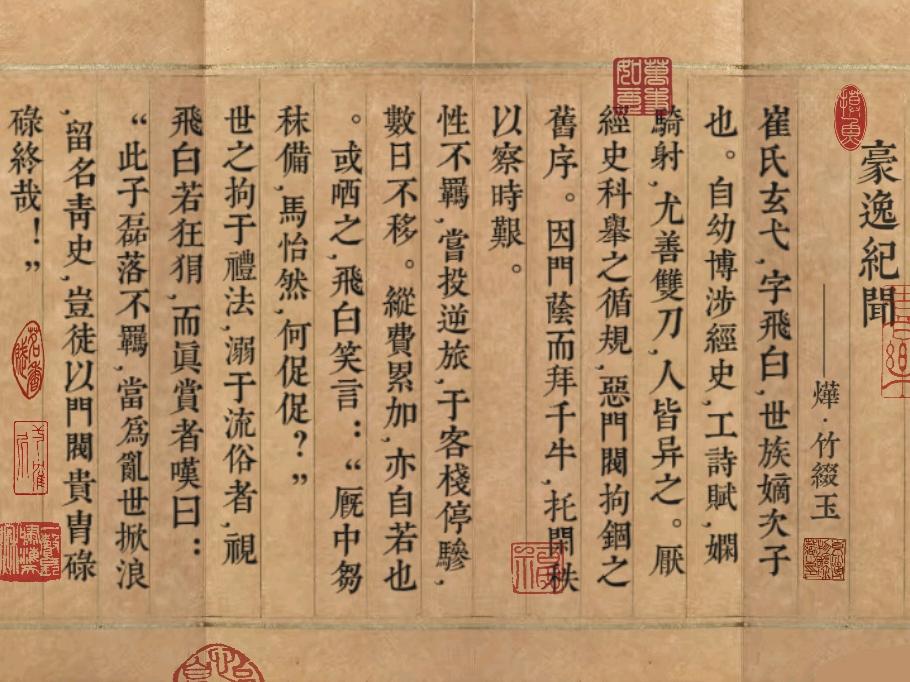 豪逸紀聞
————燁·竹綴玉
崔氏玄弋,字飛白,世族嫡次子
也。自幼博涉經史,工詩賦,嫻
騎射,尤善雙刀,人皆异之。厭
經史科舉之循規,惡門閥拘錮之
舊序。因門蔭而拜千牛,托閑秩
以察時艱。
性不羈,嘗投逆旅,于客棧停驂,
數日不移。縱費累加,亦自若也
。或哂之,飛白笑言：“厩中芻
秣備,馬怡然,何促促?”
世之拘于禮法,溺于流俗者,視
飛白若狂狷,而眞賞者嘆曰：
“此子磊落不羈,當爲亂世掀浪
,留名靑史,豈徒以門閥貴胄碌
碌終哉！”
萬事如意